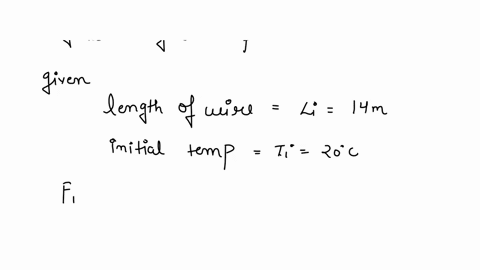 given
length of wire = Li = 14m
initial temp = Ti = 20°C
F1